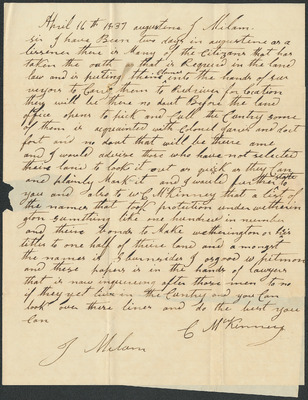 April 16th 1837 augustine J. Milam
Sir I have Been two days in augustine as a
lissiner there is Many of the Citizens that has
taken the oath that is Required in the land
law and is puting them into the hands of sur
veyors to Carry them to Red river for location
they will be there no dout Before the land
office opens to pick and Cull the Cuntry some
of them is aquainted with Colonel
fort and no dout that will be there ame
and I would advise those who have not selected
theirs land to look it out as quick as they can
and plainly Mark it and I would further to
you and also J W C McKinney that a list of
the names that took protection under wethering
ton sumthing like one hundred in number
and theire bonds to Make wetherington or his
title to one half of theire land and a mongst
the names is J burnsides J osgood w pitmon
and these papers is in the hands of lawyers
that is now inquireing after those men to no
if they yet live in the Cuntry and you Can
look over there lines and do the best you
Can
C McKinney
J Milam